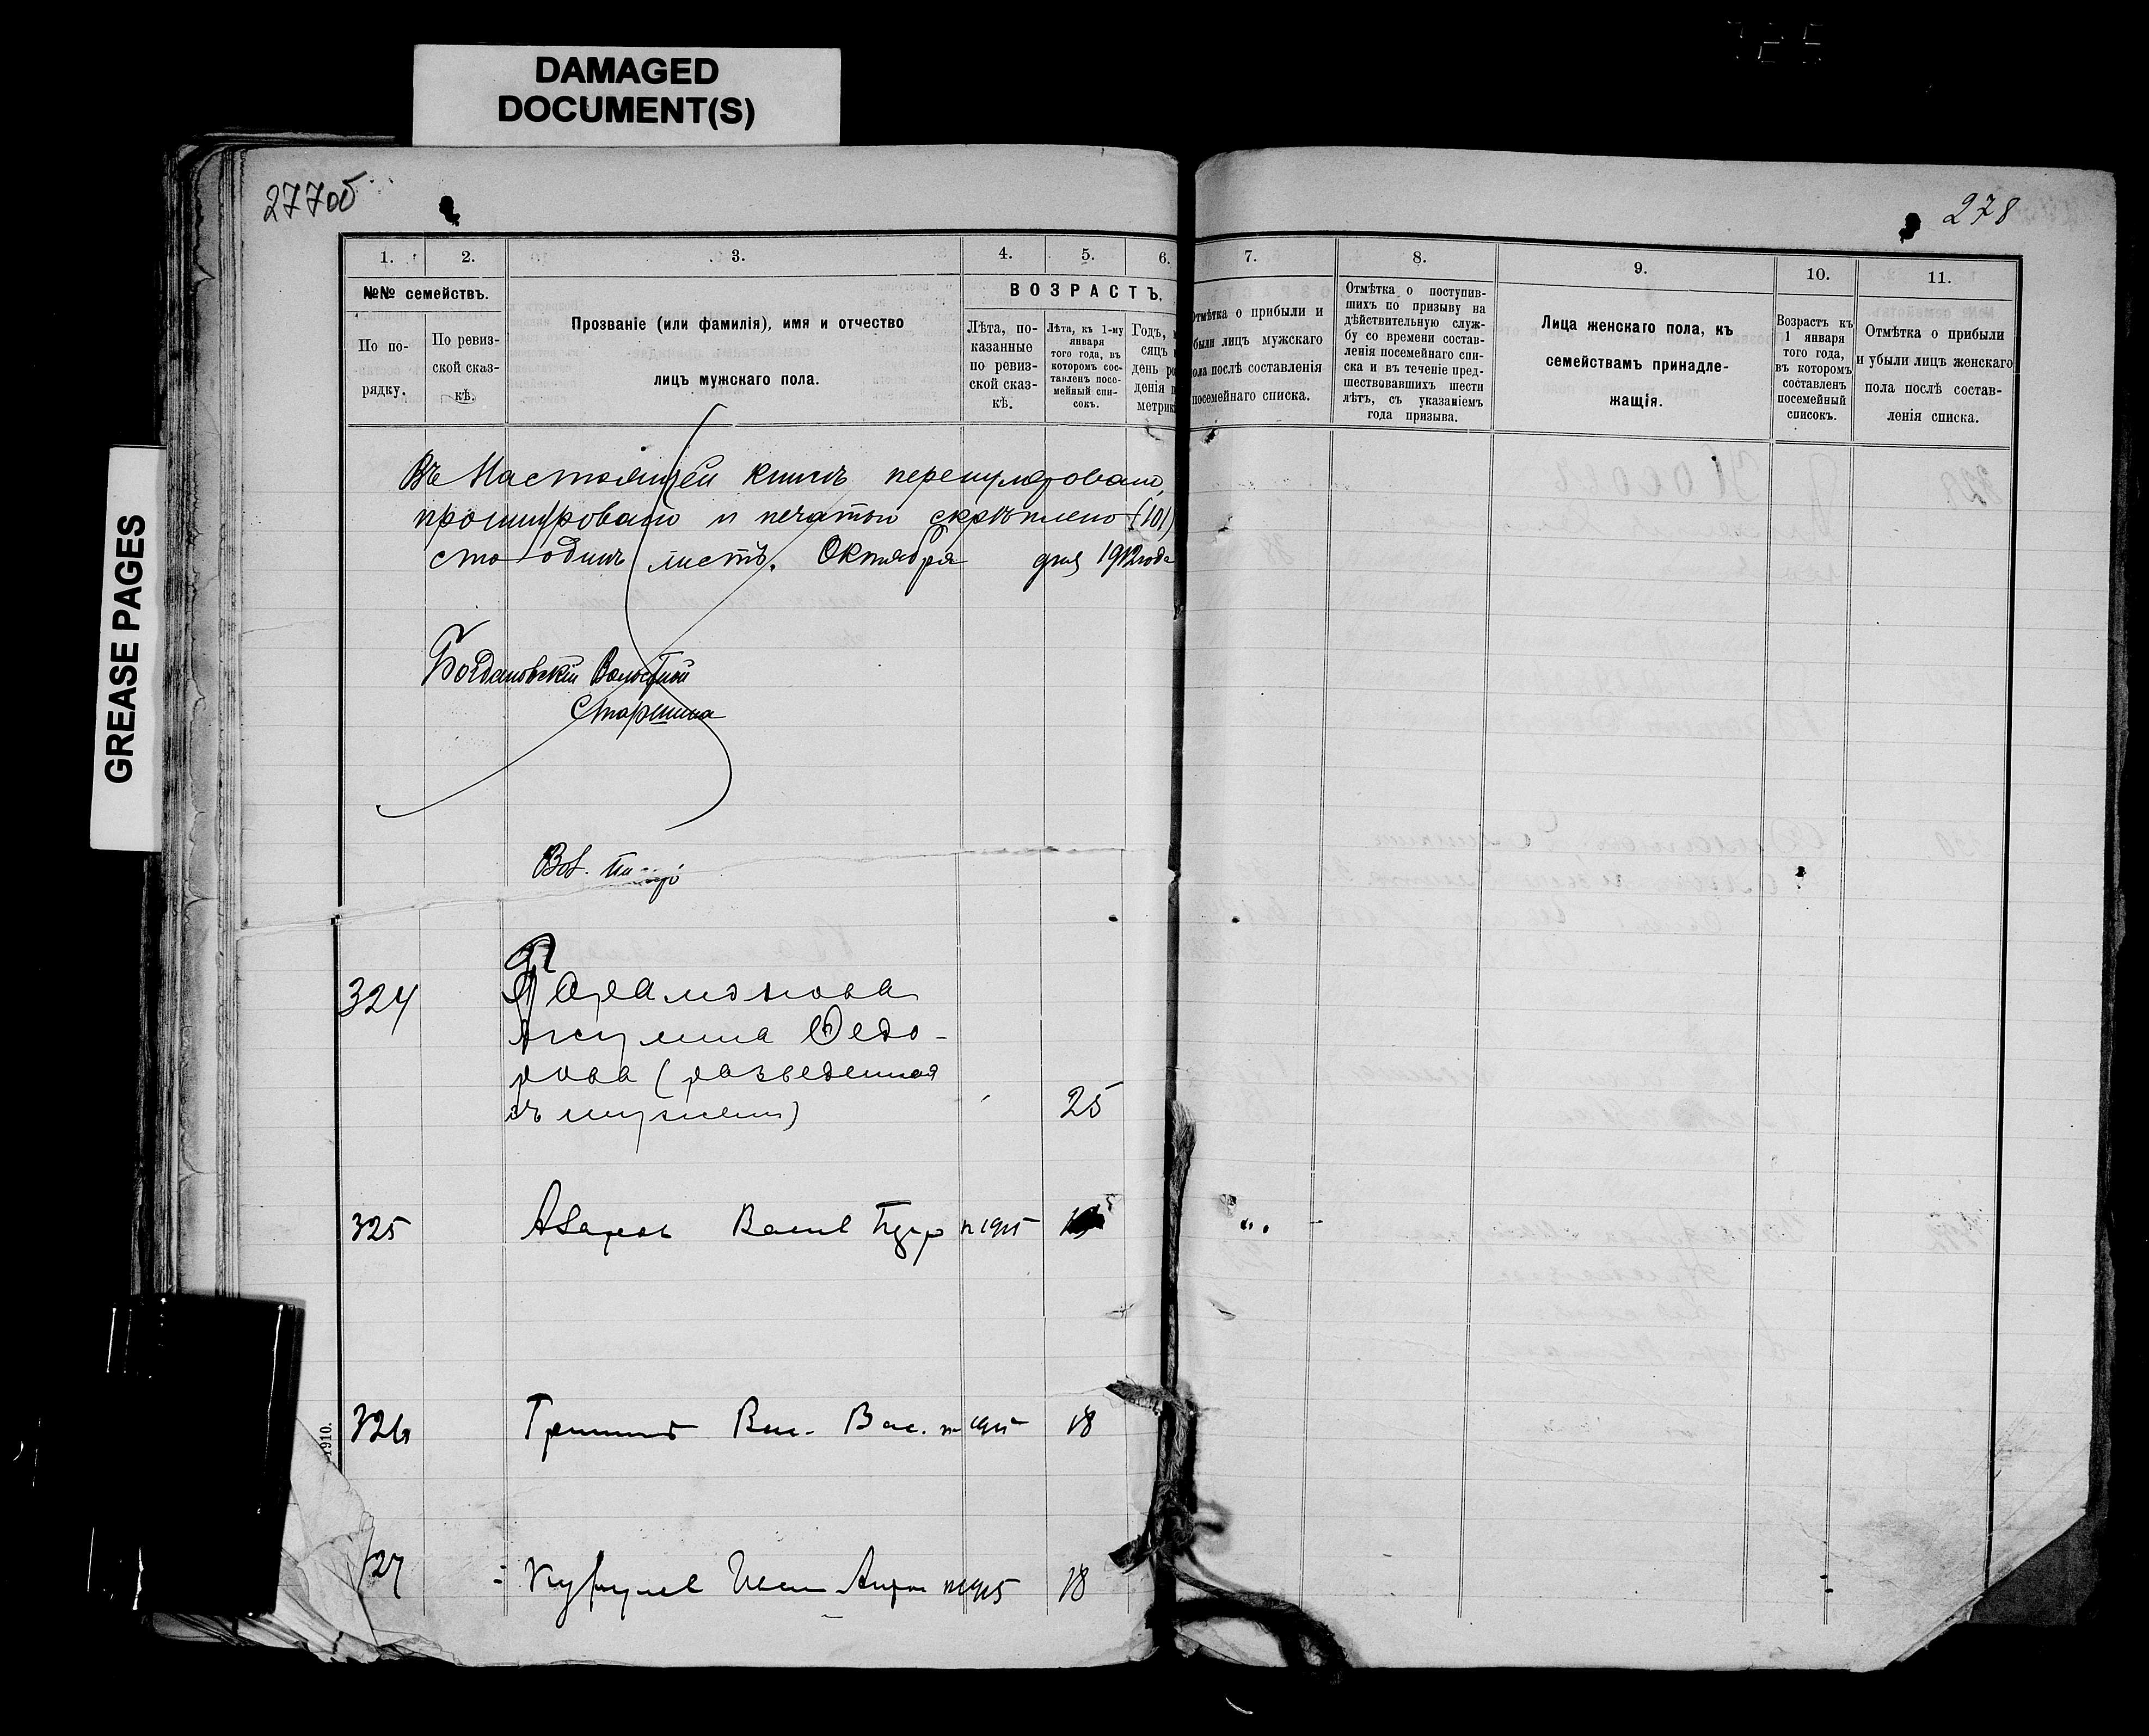 DAMAGED
DOCUMENT(S)
GREASE PAGES
277об
278
1.
2.
3.
4.
5.
6.
7.
8.
9.
10.
11.
№№ семействъ.
По по-
рядку.
По ревиз-
ской сказ-
кѣ.
Прозваніе (или фамилія), имя и отчество
лицъ мужскаго пола.
ВОЗРАСТЪ.
Лѣта, по-
казанные
по ревиз-
ской сказ-
кѣ.
Лѣта, къ 1-му
января
того года, въ
которомъ сос-
тавленъ посе-
мейный спи-
сокъ.
Годъ,
сяцъ
день
денія
метрик
Отмѣтка о прибыли и
были лицъ мужскаго
пола послѣ составленія
посемейнаго списка.
Отмѣтка о поступив-
шихъ по призыву на
дѣйствительную служ-
бу со времени состав-
ленія посемейнаго спи-
ска и въ теченіе пред-
шествовавшихъ шести
лѣтъ, съ указаніемъ
года призыва.
Лица женскаго пола, къ
семействамъ принадле-
жащія.
Возрастъ къ
1 января
того года,
въ которомъ
составленъ
посемейный
списокъ.
Отмѣтка о прибыли
и убыли лицъ женскаго
пола послѣ состав-
ленія списка.
Въ Настоящей книгѣ перенумеровано,
прошнуровано и печатью скрѣплено (101)
сто одинъ листъ. Октября дня 1912 года
Богдановскій Волостной
Старшина
324
Федо-
рова (разведенная
съ мужем) 25
325 1915
326 Вас. Вас. 1915 18
27 Иван 1915 18
1910.